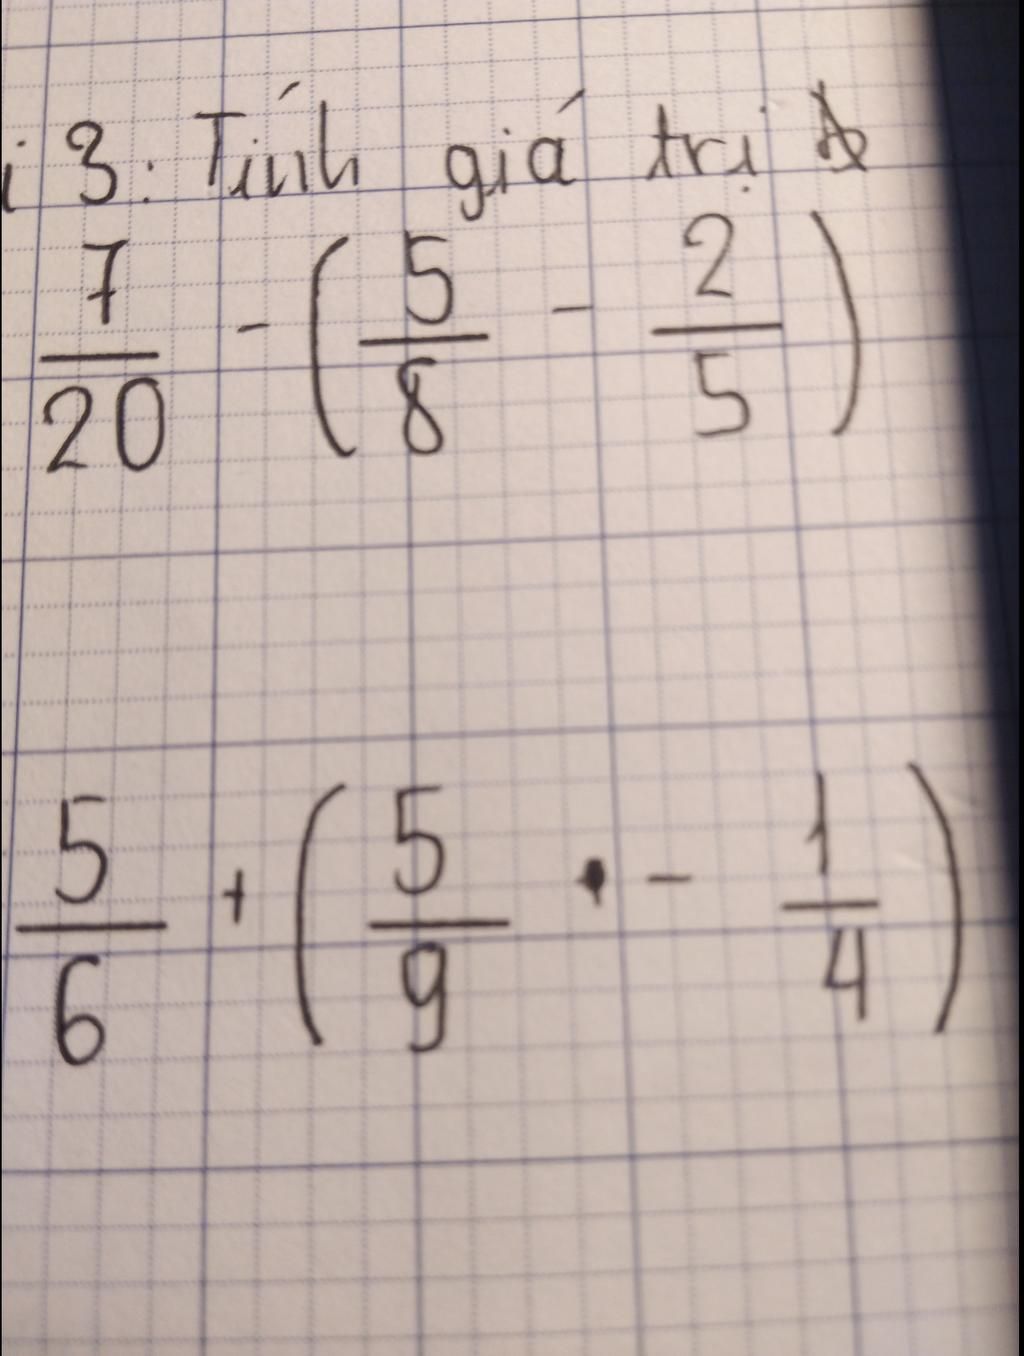 i 3: Tính giá trị
7/20 - (5/8 - 2/5)
5/6 + (5/9 - 1/4)